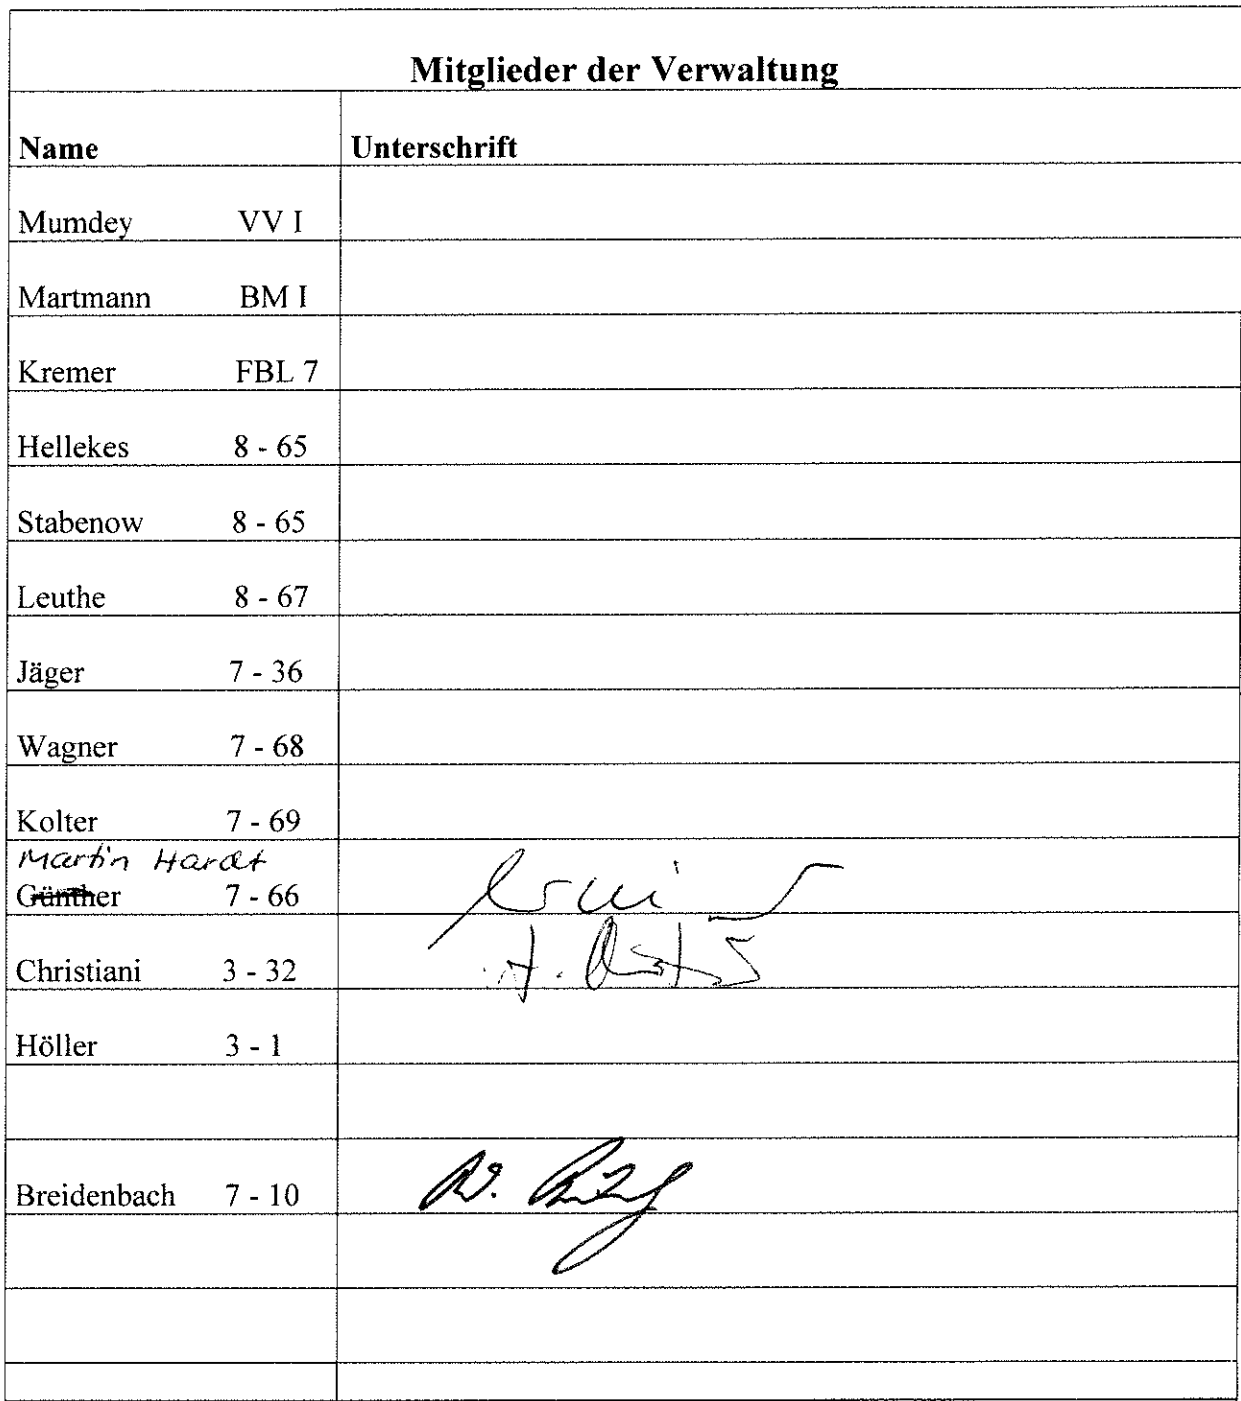 Mitglieder der Verwaltung
Name Unterschrift
Mumdey VV I
Martmann BM I
Kremer FBL 7
Hellekes 8 - 65
Stabenow 8 - 65
Leuthe 8 - 67
Jäger 7 - 36
Wagner 7 - 68
Kolter 7 - 69
Martin Hardt
Günther 7 - 66
Christiani 3 - 32
Höller 3 - 1
Breidenbach 7 - 10